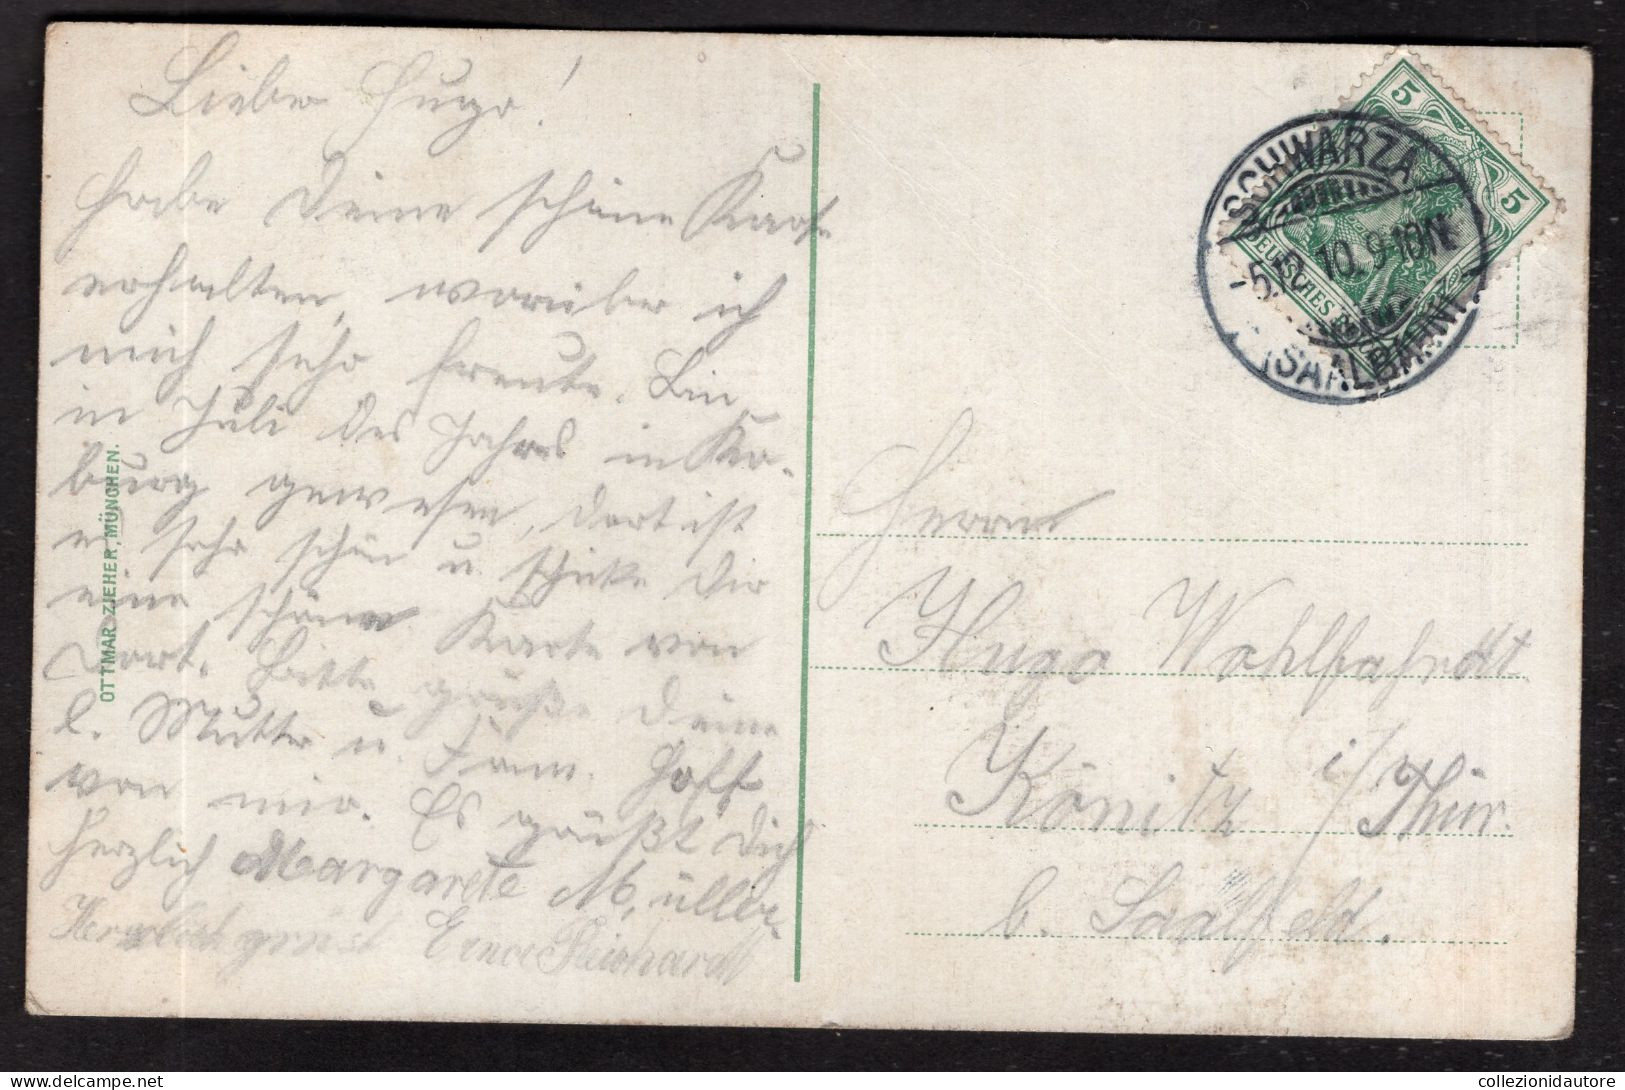 Lieber Hugo!
Habe Deine schöne Karte
erhalten, worüber ich
mich sehr freute. Bin
in Juli des Jahres in Ko-
burg gewesen, dort ist
es sehr schön u. schicke Dir
eine schöne Karte von
dort. Bitte grüße Deine
l. Mutter u. Fam. Hoff
von mir. Es grüßt Dich
herzlich Margarete Müller.
Herzlich grüst Reinhardt
OTTMAR ZIEHER, MÜNCHEN.
5
5
DEUTSCHES REICH
SCHWARZA
5.12.10. 9-10N.
(SAALBAHN)
Herrn
Hugo Wohlfahrdt
Könitz i/Thür.
b. Saalfeld.
collezionidautore